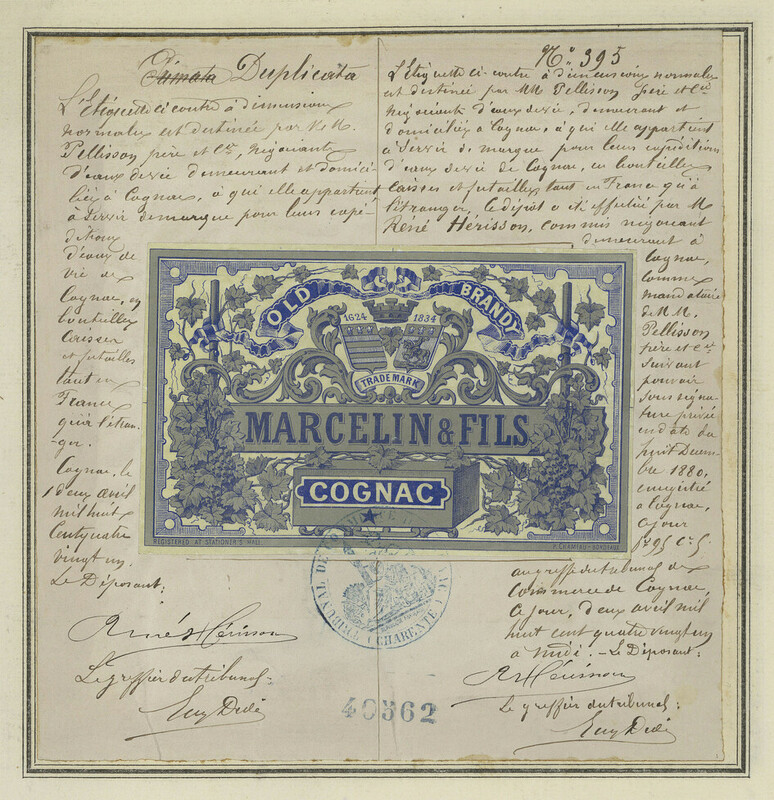 Duplicata
L'Etiquette ci contre à dimensions
normales est destinée par M.M.
Pellisson père et Cie, négociants
d'eaux de vie demeurant et domici-
liés à Cognac, à qui elle appartient
à servir de marque pour leurs expé-
ditions
d'eaux de
vie de
Cognac, en
bouteilles
caisses
et futailles
tant en
France
qu'à l'étran-
ger.
Cognac, le
deux avril
mil huit
cent quatre
vingt un
Le Déposant:
René Hérisson
Le greffier du tribunal
Eug Didé
No 395
L'Etiquette ci-contre à dimensions normales
est destinée par MM Pellisson père et Cie
négociants d'eaux de vie, demeurant et
domiciliés à Cognac, à qui elle appartient
à servir de marque pour leurs expéditions
d'eaux de vie de Cognac, en bouteilles
caisses et futailles tant en France qu'à
l'étranger. Le dépôt a été effectué par M
René Hérisson, commis négociant
demeurant à
Cognac,
comme
mandataire
de M.M.
Pellisson
père et Cie
suivant
pouvoir
sous signa-
ture privée
en date du
huit Décem-
bre 1880,
enregistré
à Cognac,
ce jour
au greffe du tribunal de
Commerce de Cognac,
ce jour, deux avril mil
huit cent quatre vingt un
à midi. - Le Déposant:
R Hérisson
Le greffier du tribunal:
Eug Didé
OLD BRANDY
1624 1834
TRADE MARK
MARCELIN & FILS
COGNAC
REGISTERED AT STATIONER'S HALL
TRIBUNAL DE
CHARENTE
40362